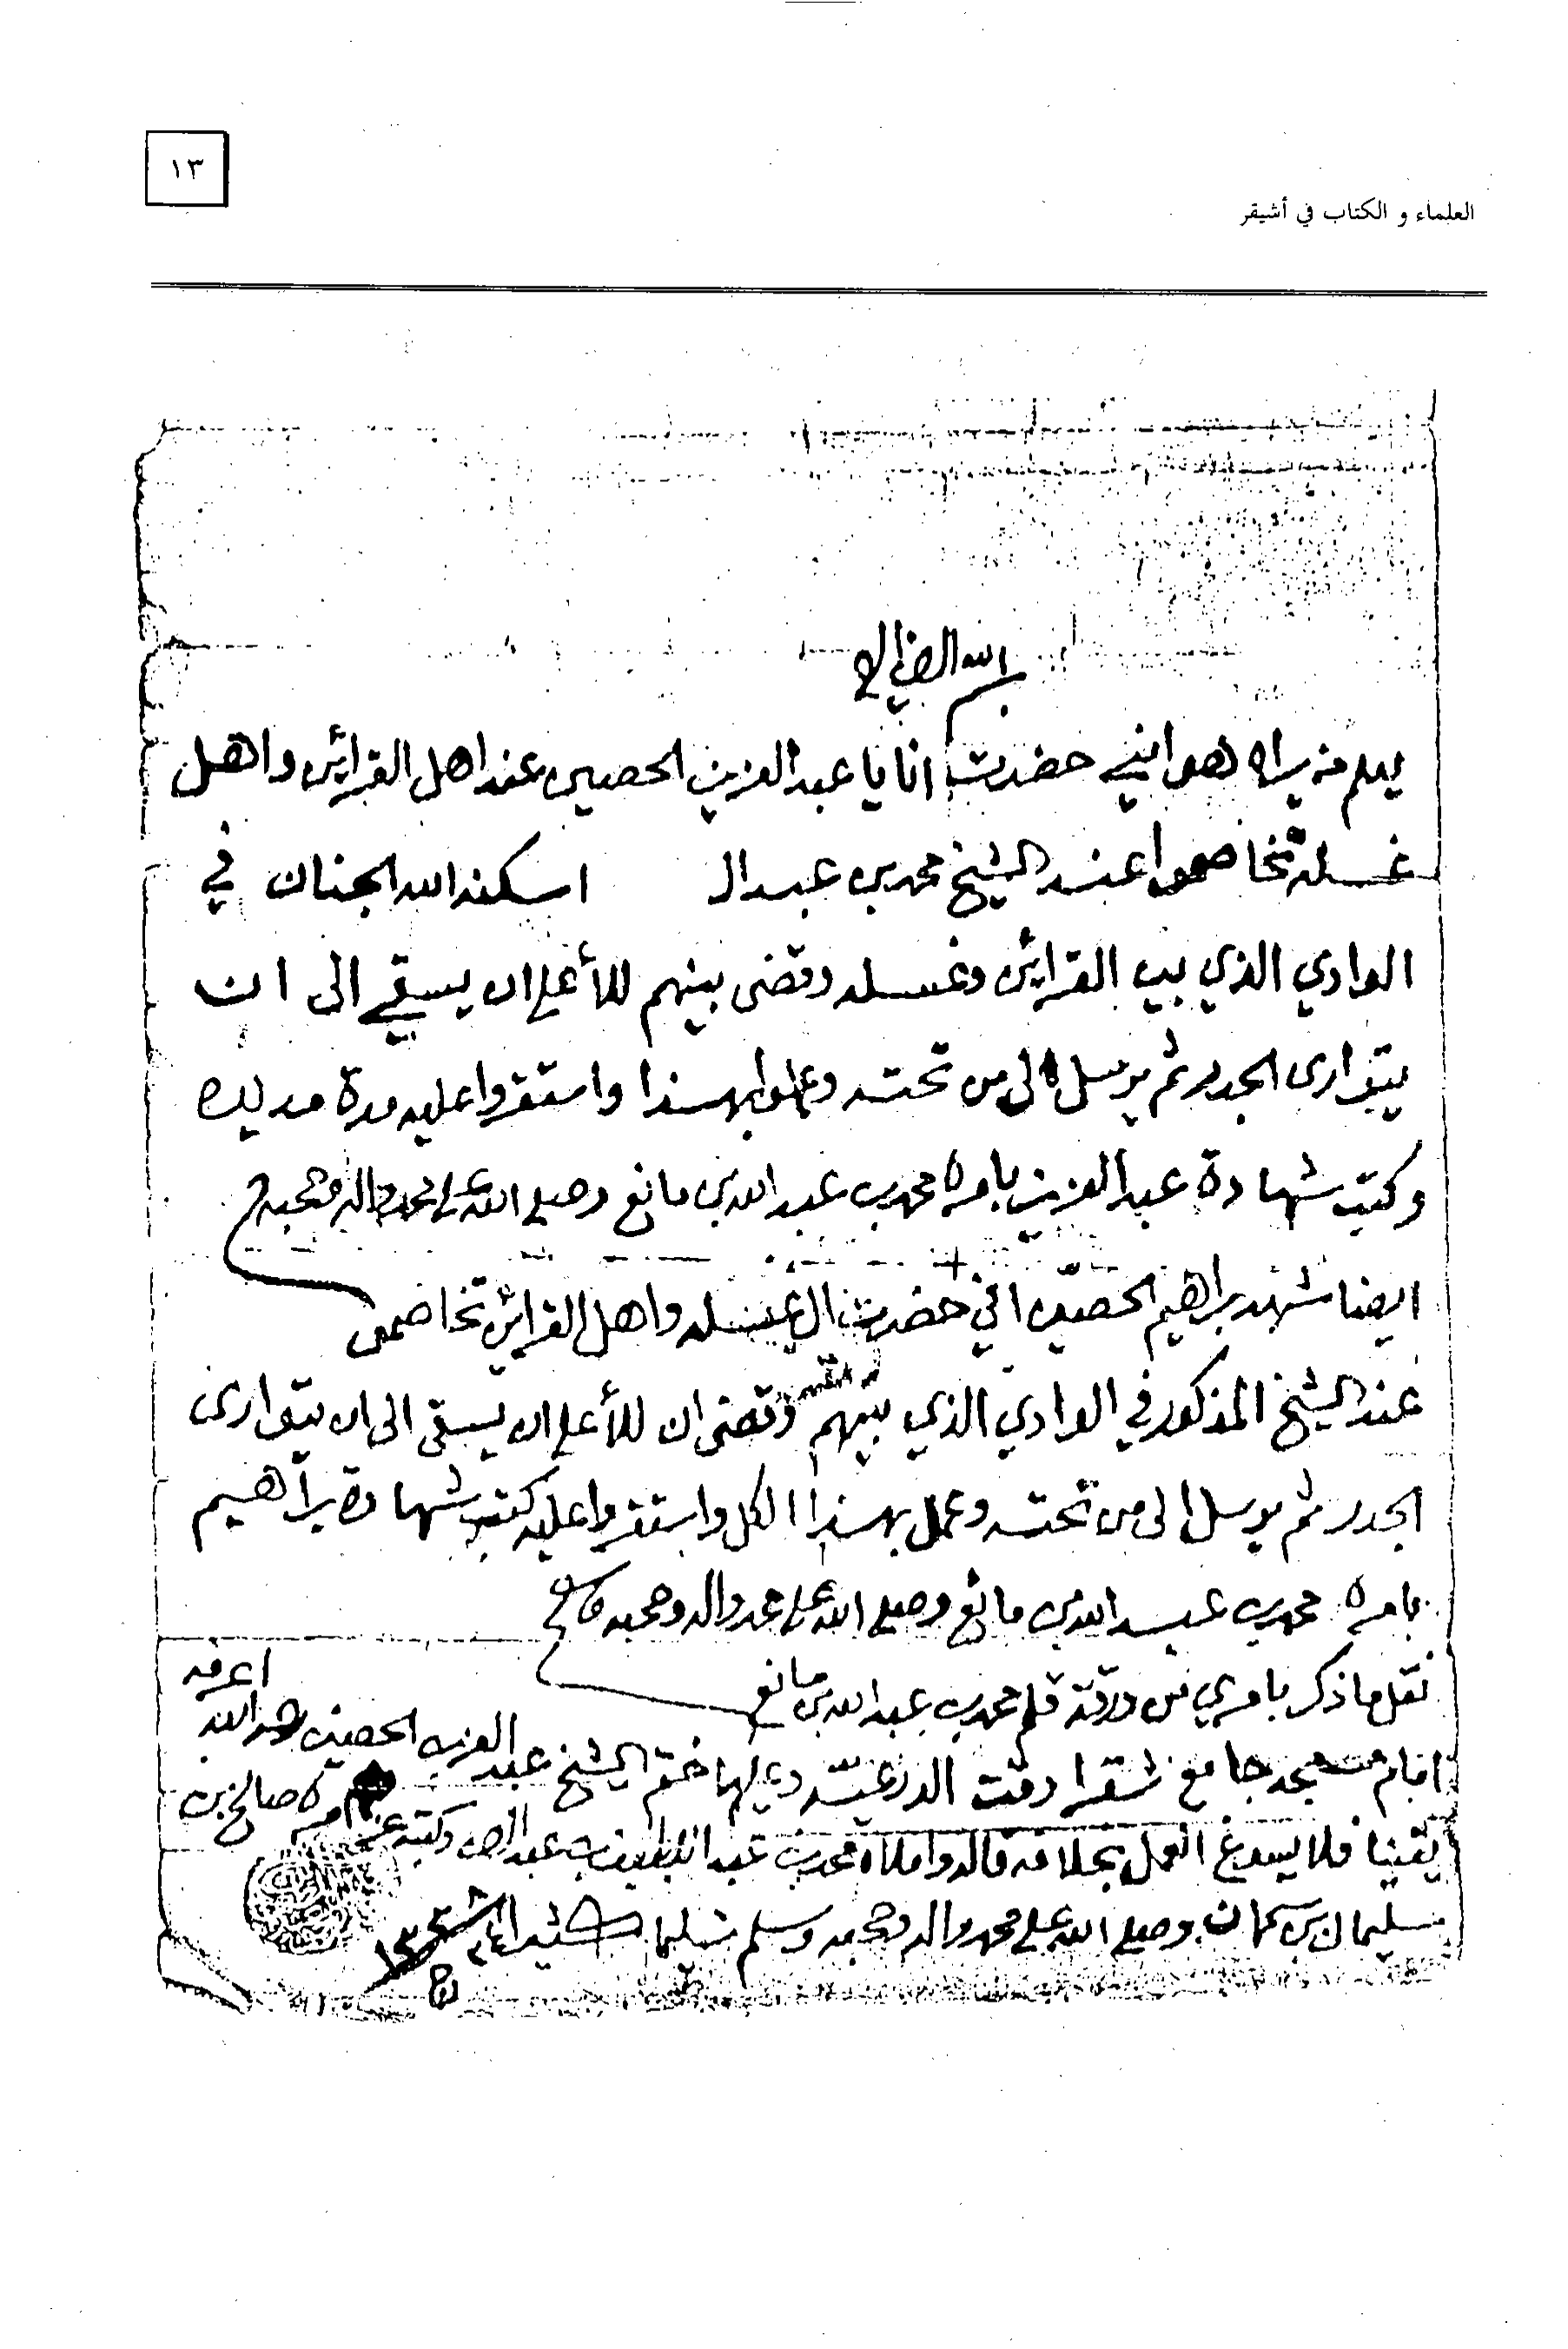 ١٣
العلماء و الكتاب في أشيقر
بسم الله الرحمن الرحيم
يعلم من يراه هو انني حضرت انا يا عبد العزيز الحصين عند اهل القرائن واهل
غسله تخاصموا عند الشيخ محمد بن عبد ال اسكنه الله الجنان في
الوادي الذي بين القرائن وغسله وقضى بينهم للأعلى ان يسقي الى ان
يتوارى الجدر ثم يرسل الى من تحته وعملوا بهذا واستقروا عليه مدة مديده
وكتب شهادة عبد العزيز بامره محمد بن عبد الله بن مانع وصلى الله على محمد واله وصحبه
ايضا شهد براهيم الحصين اني حضرت ال غسله واهل القرائن تخاصموا
عند الشيخ المذكور في الوادي الذي بينهم وقضى ان للأعلى ان يسقى الى ان يتوارى
الجدر ثم يرسل الى من تحته وعمل بهذا الكل واستقروا عليه كتب شهادة براهيم
بامره محمد بن عبد الله بن مانع وصلى الله على محمد واله وصحبه
نقل ما ذكر بامري من ورقة قلم محمد بن عبد الله بن مانع اعرفه
مسجد جامع شقرا وقت الدرعية وعليها ختم الشيخ عبد العزيز الحصين
يقينا فلا يسوغ العمل بخلافه قاله واملاه محمد بن عبد اللطيف بن عبد الرحمن وكتبه عن امره صالح بن
سليمان بن سحمان وصلى الله على محمد واله وصحبه وسلم تسليما كثيرا